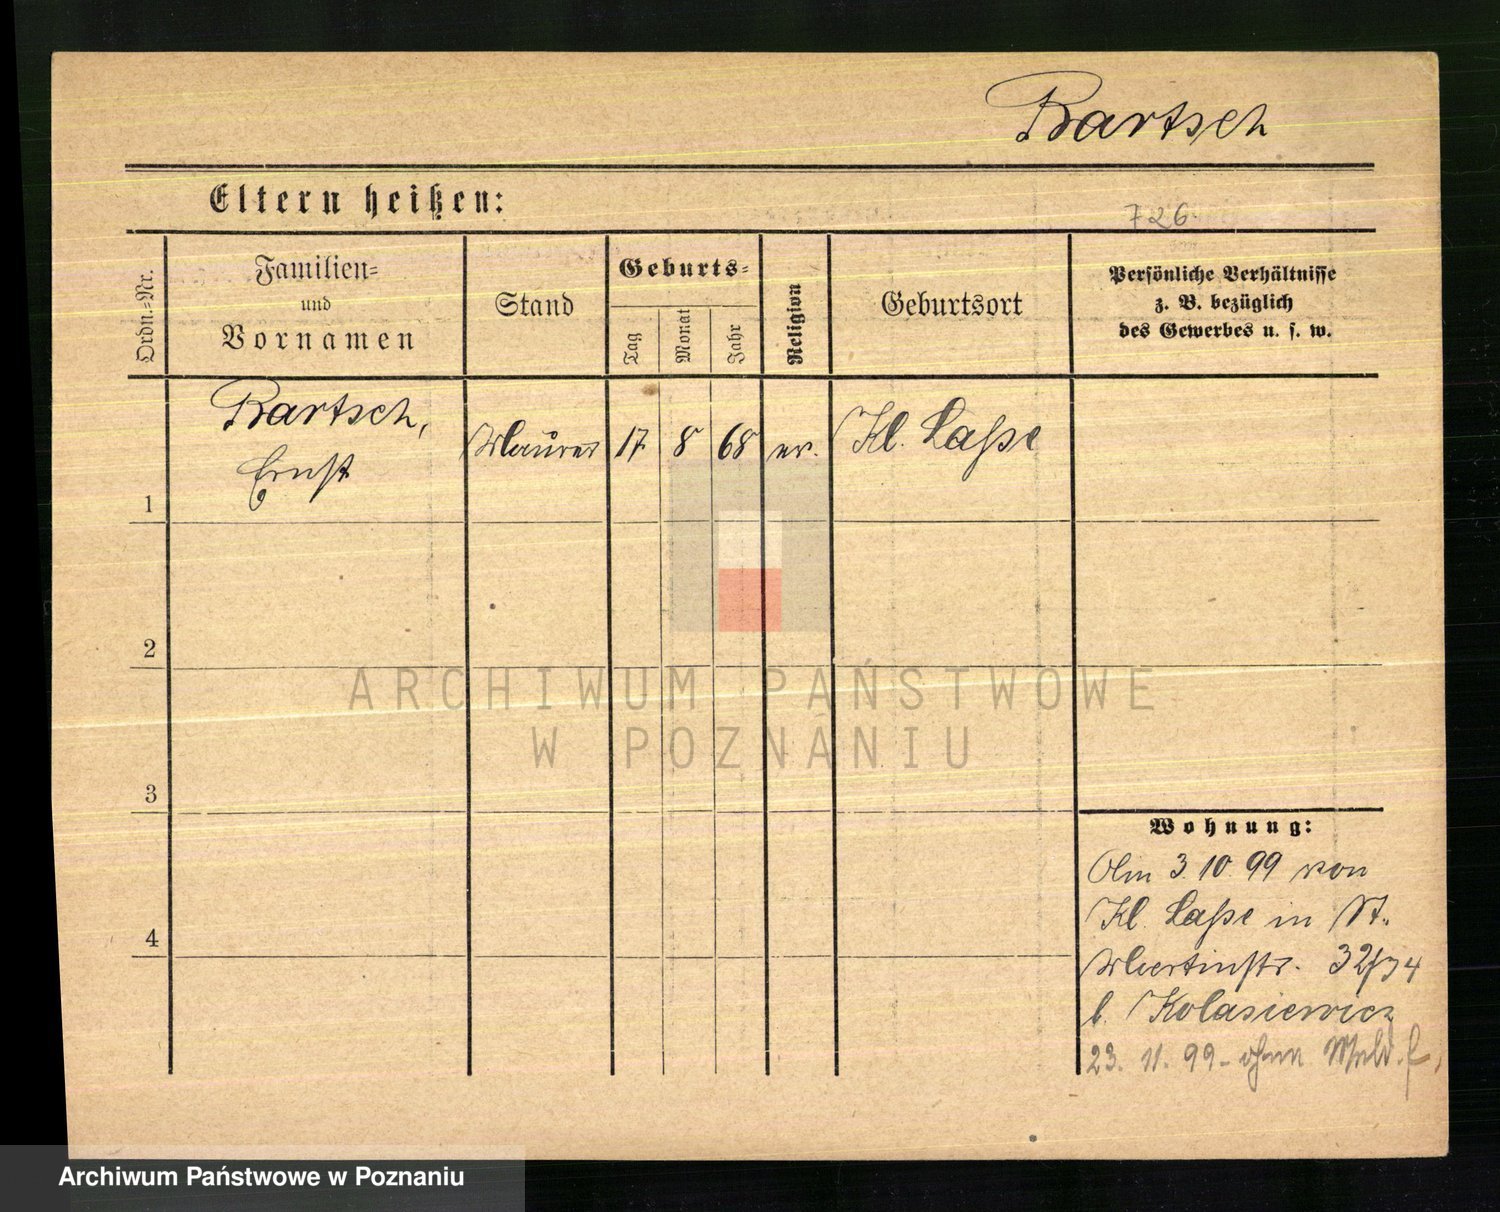 Bartsch
Eltern heißen:
726
Ordn.-Nr.
Familien-
und
Vornamen
Stand
Geburts-
Tag
Monat
Jahr
Religion
Geburtsort
Persönliche Verhältnisse
z. B. bezüglich
des Gewerbes u. s. w.
1
Bartsch,
Ernst
Maurer
17
8
68
ev.
Kl. Lasse
2
3
4
Wohnung:
3 10 99 von
Kl. Lasse in St.
Martinstr. 32/34
b. Kolasiewicz
23. 11. 99 - ohne Meld.
ARCHIWUM PAŃSTWOWE
W POZNANIU
Archiwum Państwowe w Poznaniu